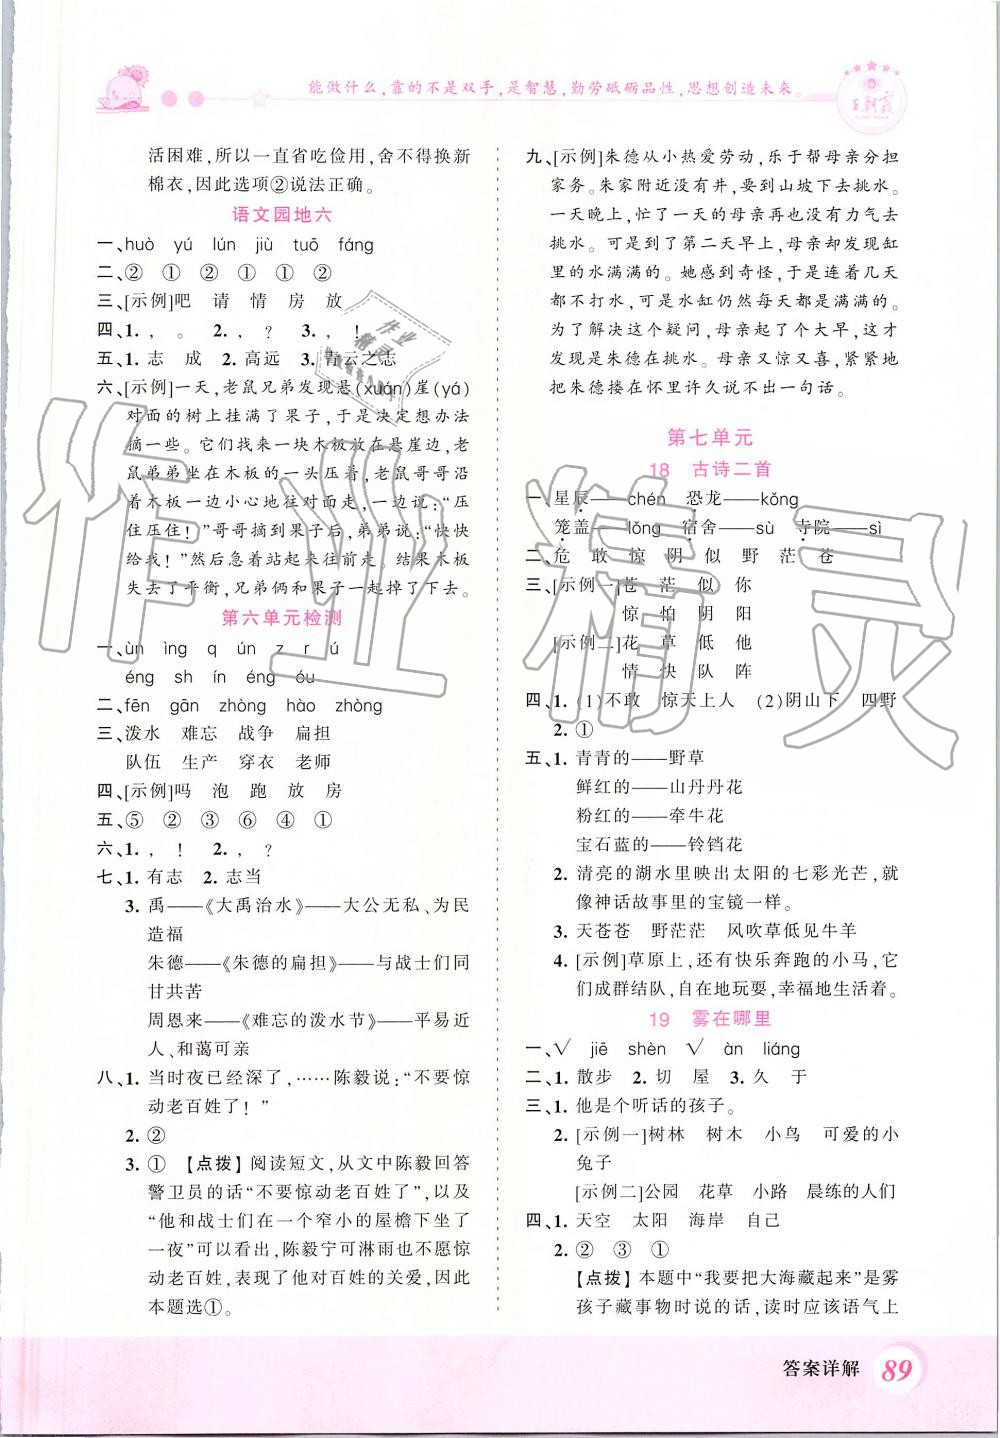 能做什么,靠的不是双手,是智慧,勤劳砥砺品性,思想创造未来。
王朝霞
活困难,所以一直省吃俭用,舍不得换新
棉衣,因此选项②说法正确。
语文园地六
一、huò yú lún jiù tuō fáng
二、② ① ② ① ① ②
三、[示例]吧 请 情 房 放
四、1. , 。 2. , ? 3. , !
五、1. 志 成 2. 高远 3. 青云之志
六、[示例]一天,老鼠兄弟发现悬(xuán)崖(yá)
对面的树上挂满了果子,于是决定想办法
摘一些。它们找来一块木板放在悬崖边,老
鼠弟弟坐在木板的一头压着,老鼠哥哥就
沿着木板一边小心地往对面走,一边说:“压
住压住!”哥哥摘到果子后,弟弟说:“快快
给我!”然后急着站起来往前走。结果木板
失去了平衡,兄弟俩和果子一起掉了下去。
第六单元检测
一、ùn ìng q ún z r ú
éng sh ín éng óu
二、fēn gān zhòng hàn zhōng
三、泼水 难忘 战争 扁担
队伍 生产 穿衣 老师
四、[示例]吗 泡 跑 放 房
五、⑤ ② ③ ⑥ ④ ①
六、1. , ! 2. , ?
七、1. 有志 2. 志当
3. 禹——《大禹治水》——大公无私、为民
造福
朱德——《朱德的扁担》——与战士们同
甘共苦
周恩来——《难忘的泼水节》——平易近
人、和蔼可亲
八、1. 当时夜已经深了,……陈毅说:“不要惊
动老百姓了!”
2. ②
3. ① 【点拨】阅读短文,从文中陈毅回答
警卫员的话“不要惊动老百姓了”,以及
“他和战士们在一个窄小的屋檐下坐了
一夜”可以看出,陈毅宁可淋雨也不愿惊
动老百姓,表现了他对百姓的关爱,因此
本题选①。
九、[示例]朱德从小热爱劳动,乐于帮母亲分担
家务。朱家附近没有井,要到山坡下去挑水。
一天晚上,忙了一天的母亲再也没有力气去
挑水。可是到了第二天早上,母亲却发现缸
里的水满满的。她感到奇怪,于是连着几天
都不打水,可是水缸仍然每天都是满满的。
为了解决这个疑问,母亲起了个大早,这才
发现是朱德在挑水。母亲又惊又喜,紧紧地
把朱德搂在怀里许久说不出一句话。
第七单元
18 古诗二首
一、星辰——chén 恐龙——kǒng
笼盖——lǒng 宿舍——sù 寺院——sì
二、危 敢 惊 阴 似 野 茫 苍
三、[示例一]苍 茫 似 你
惊 怕 阴 阳
[示例二]花 草 低 他
情 快 队 阵
四、1. (1)不敢 惊天上人 (2)阴山下 四野
2. ①
五、1. 青青的——野草
鲜红的——山丹丹花
粉红的——牵牛花
宝石蓝的——铃铛花
2. 清亮的湖水里映出太阳的七彩光芒,就
像神话故事里的宝镜一样。
3. 天苍苍 野茫茫 风吹草低见牛羊
4. [示例]草原上,还有快乐奔跑的小马,它
们成群结队,自在地玩耍,幸福地生活着。
19 雾在哪里
一、√ jiē shèn √ àn liáng
二、1. 散步 2. 切 屋 3. 久 于
三、1. 他是个听话的孩子。
2. [示例一]树林 树木 小鸟 可爱的小
兔子
[示例二]公园 花草 小路 晨练的人们
四、1. 天空 太阳 海岸 自己
2. ② ③ ①
【点拨】本题中“我要把大海藏起来”是雾
孩子藏事物时说的话,读时应该语气上
答案详解 89
作业精灵